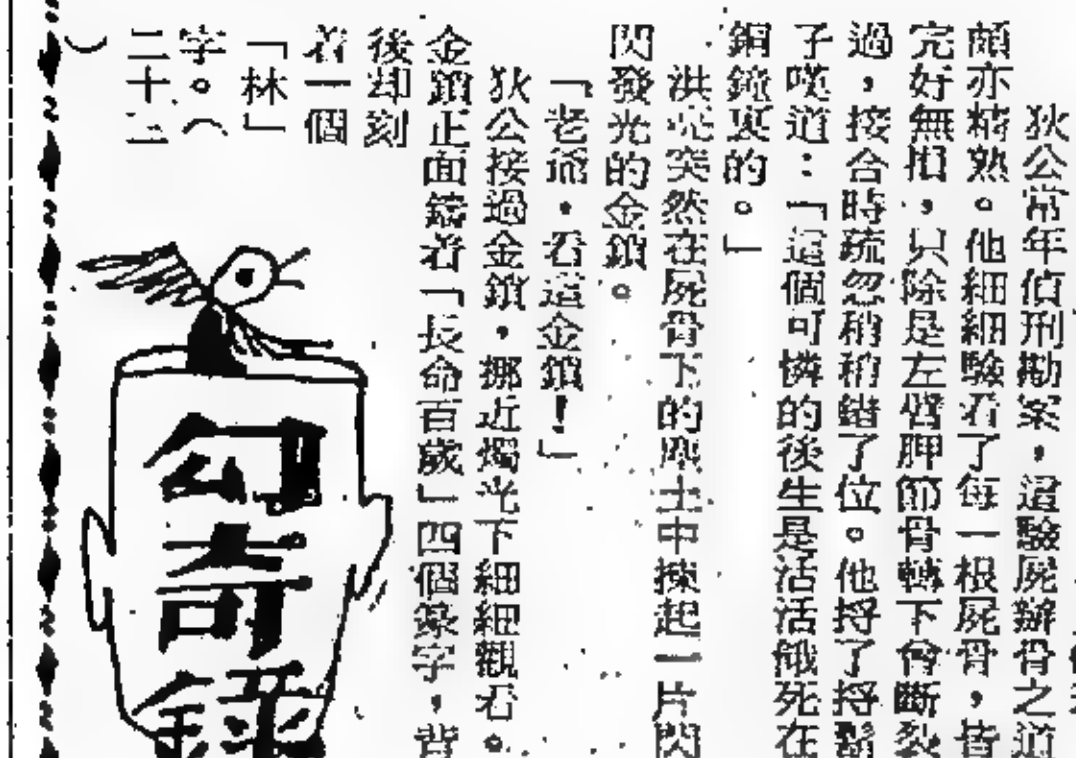 狄公常年偵刑勘案，這驗屍辦骨之道
頗亦精熟。他細細驗看了每一根屍骨，皆
完好無損，只除是左臂胛節骨轉下曾斷裂
過，接合時疏忽稍稍錯了位。他捋了捋鬍
子嘆道：「這個可憐的後生是活活餓死在
銅鐘裏的。」
洪亮突然在屍骨下的塵土中揀起一片閃
閃發光的金鎖。
「老爺，看這金鎖！」
狄公接過金鎖，挪近燭光下細細觀看。
金鎖正面鑄着「長命百歲」四個篆字，背
後却刻
着一個
「林」
字。（
二十二
）
勾奇錄